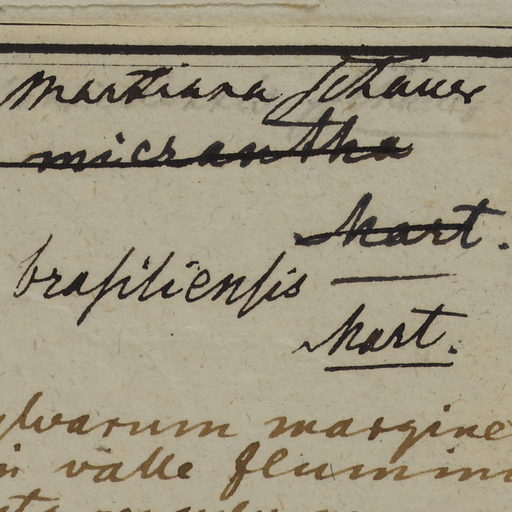 Martiana Schauer
micrantha
Mart.
brasiliensis
Mart.
sylvarum margine
in valle flumini